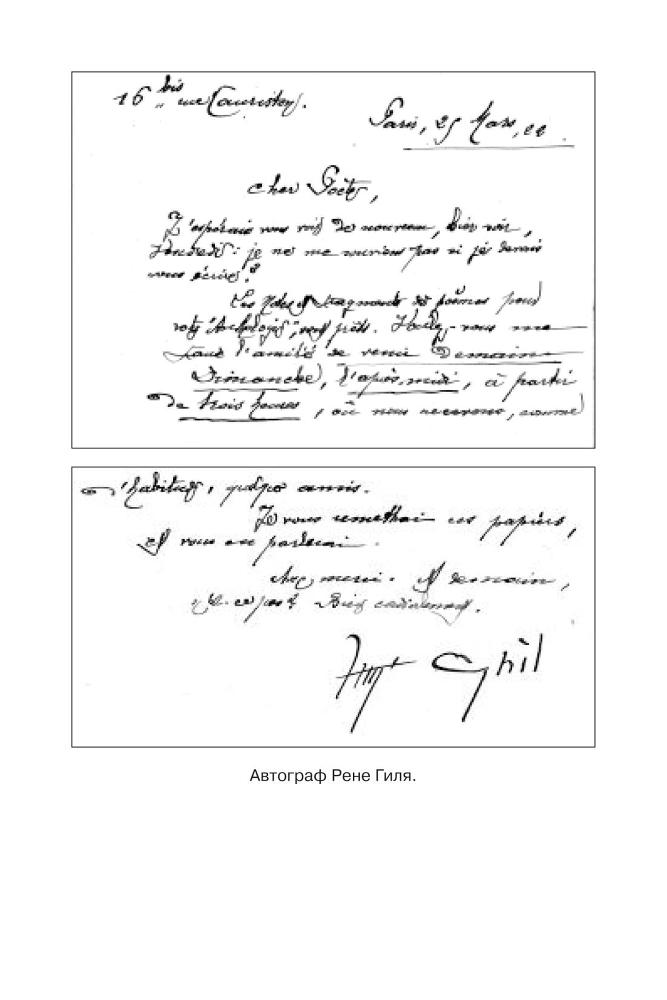 16 bis rue Lauriston.
Paris, 25 Mars, 22
cher Poète,
J'espérais vous voir de nouveau, hier soir,
Vendredi : je ne me souviens pas si je devais
vous écrire ?
Les Notes et fragments de poèmes pour
votre "Anthologie", sont prêts. Voulez-vous me
faire l'amitié de venir Demain
Dimanche, l'après-midi, à partir
De trois heures, où nous recevons, comme
d'habitude, quelques amis.
Je vous remettrai ces papiers,
et vous en parlerai.
Avec merci. A demain,
n'est-ce pas ? Bien cordialement.
René Ghil
Автограф Рене Гиля.